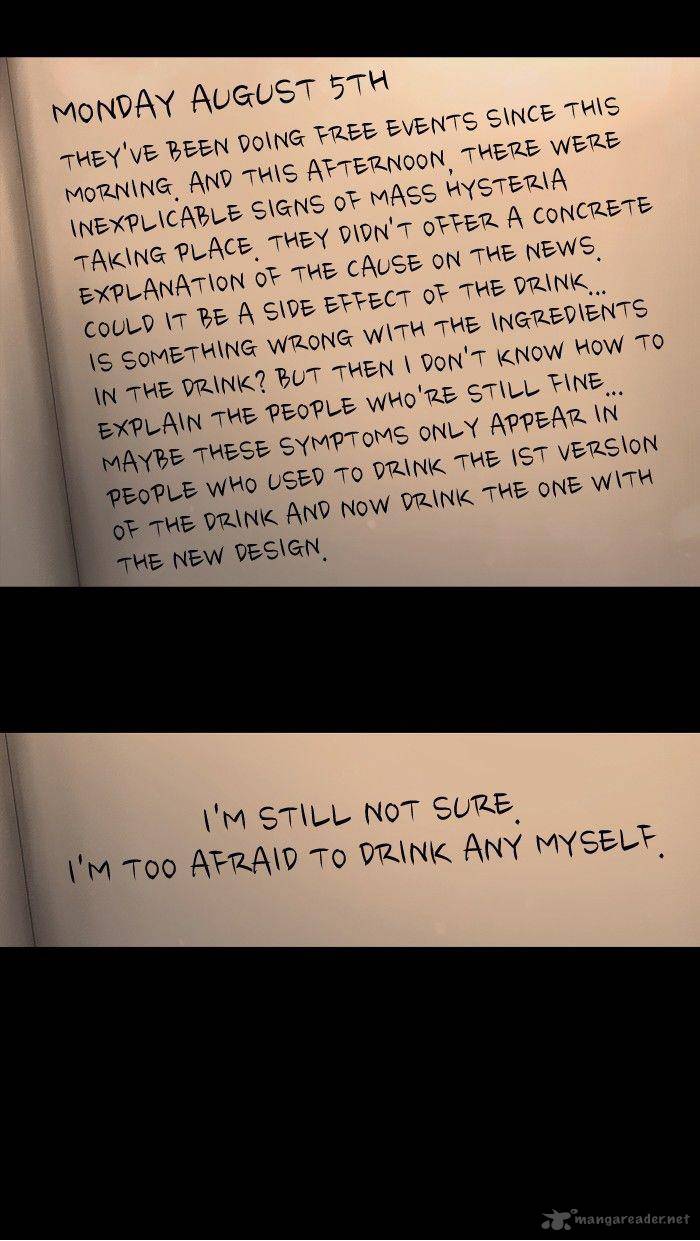 MONDAY AUGUST 5TH
THEY'VE BEEN DOING FREE EVENTS SINCE THIS
MORNING. AND THIS AFTERNOON, THERE WERE
INEXPLICABLE SIGNS OF MASS HYSTERIA
TAKING PLACE. THEY DIDN'T OFFER A CONCRETE
EXPLANATION OF THE CAUSE ON THE NEWS.
COULD IT BE A SIDE EFFECT OF THE DRINK...
IS SOMETHING WRONG WITH THE INGREDIENTS
IN THE DRINK? BUT THEN I DON'T KNOW HOW TO
EXPLAIN THE PEOPLE WHO'RE STILL FINE...
MAYBE THESE SYMPTOMS ONLY APPEAR IN
PEOPLE WHO USED TO DRINK THE 1ST VERSION
OF THE DRINK AND NOW DRINK THE ONE WITH
THE NEW DESIGN.
I'M STILL NOT SURE.
I'M TOO AFRAID TO DRINK ANY MYSELF.
mangareader.net